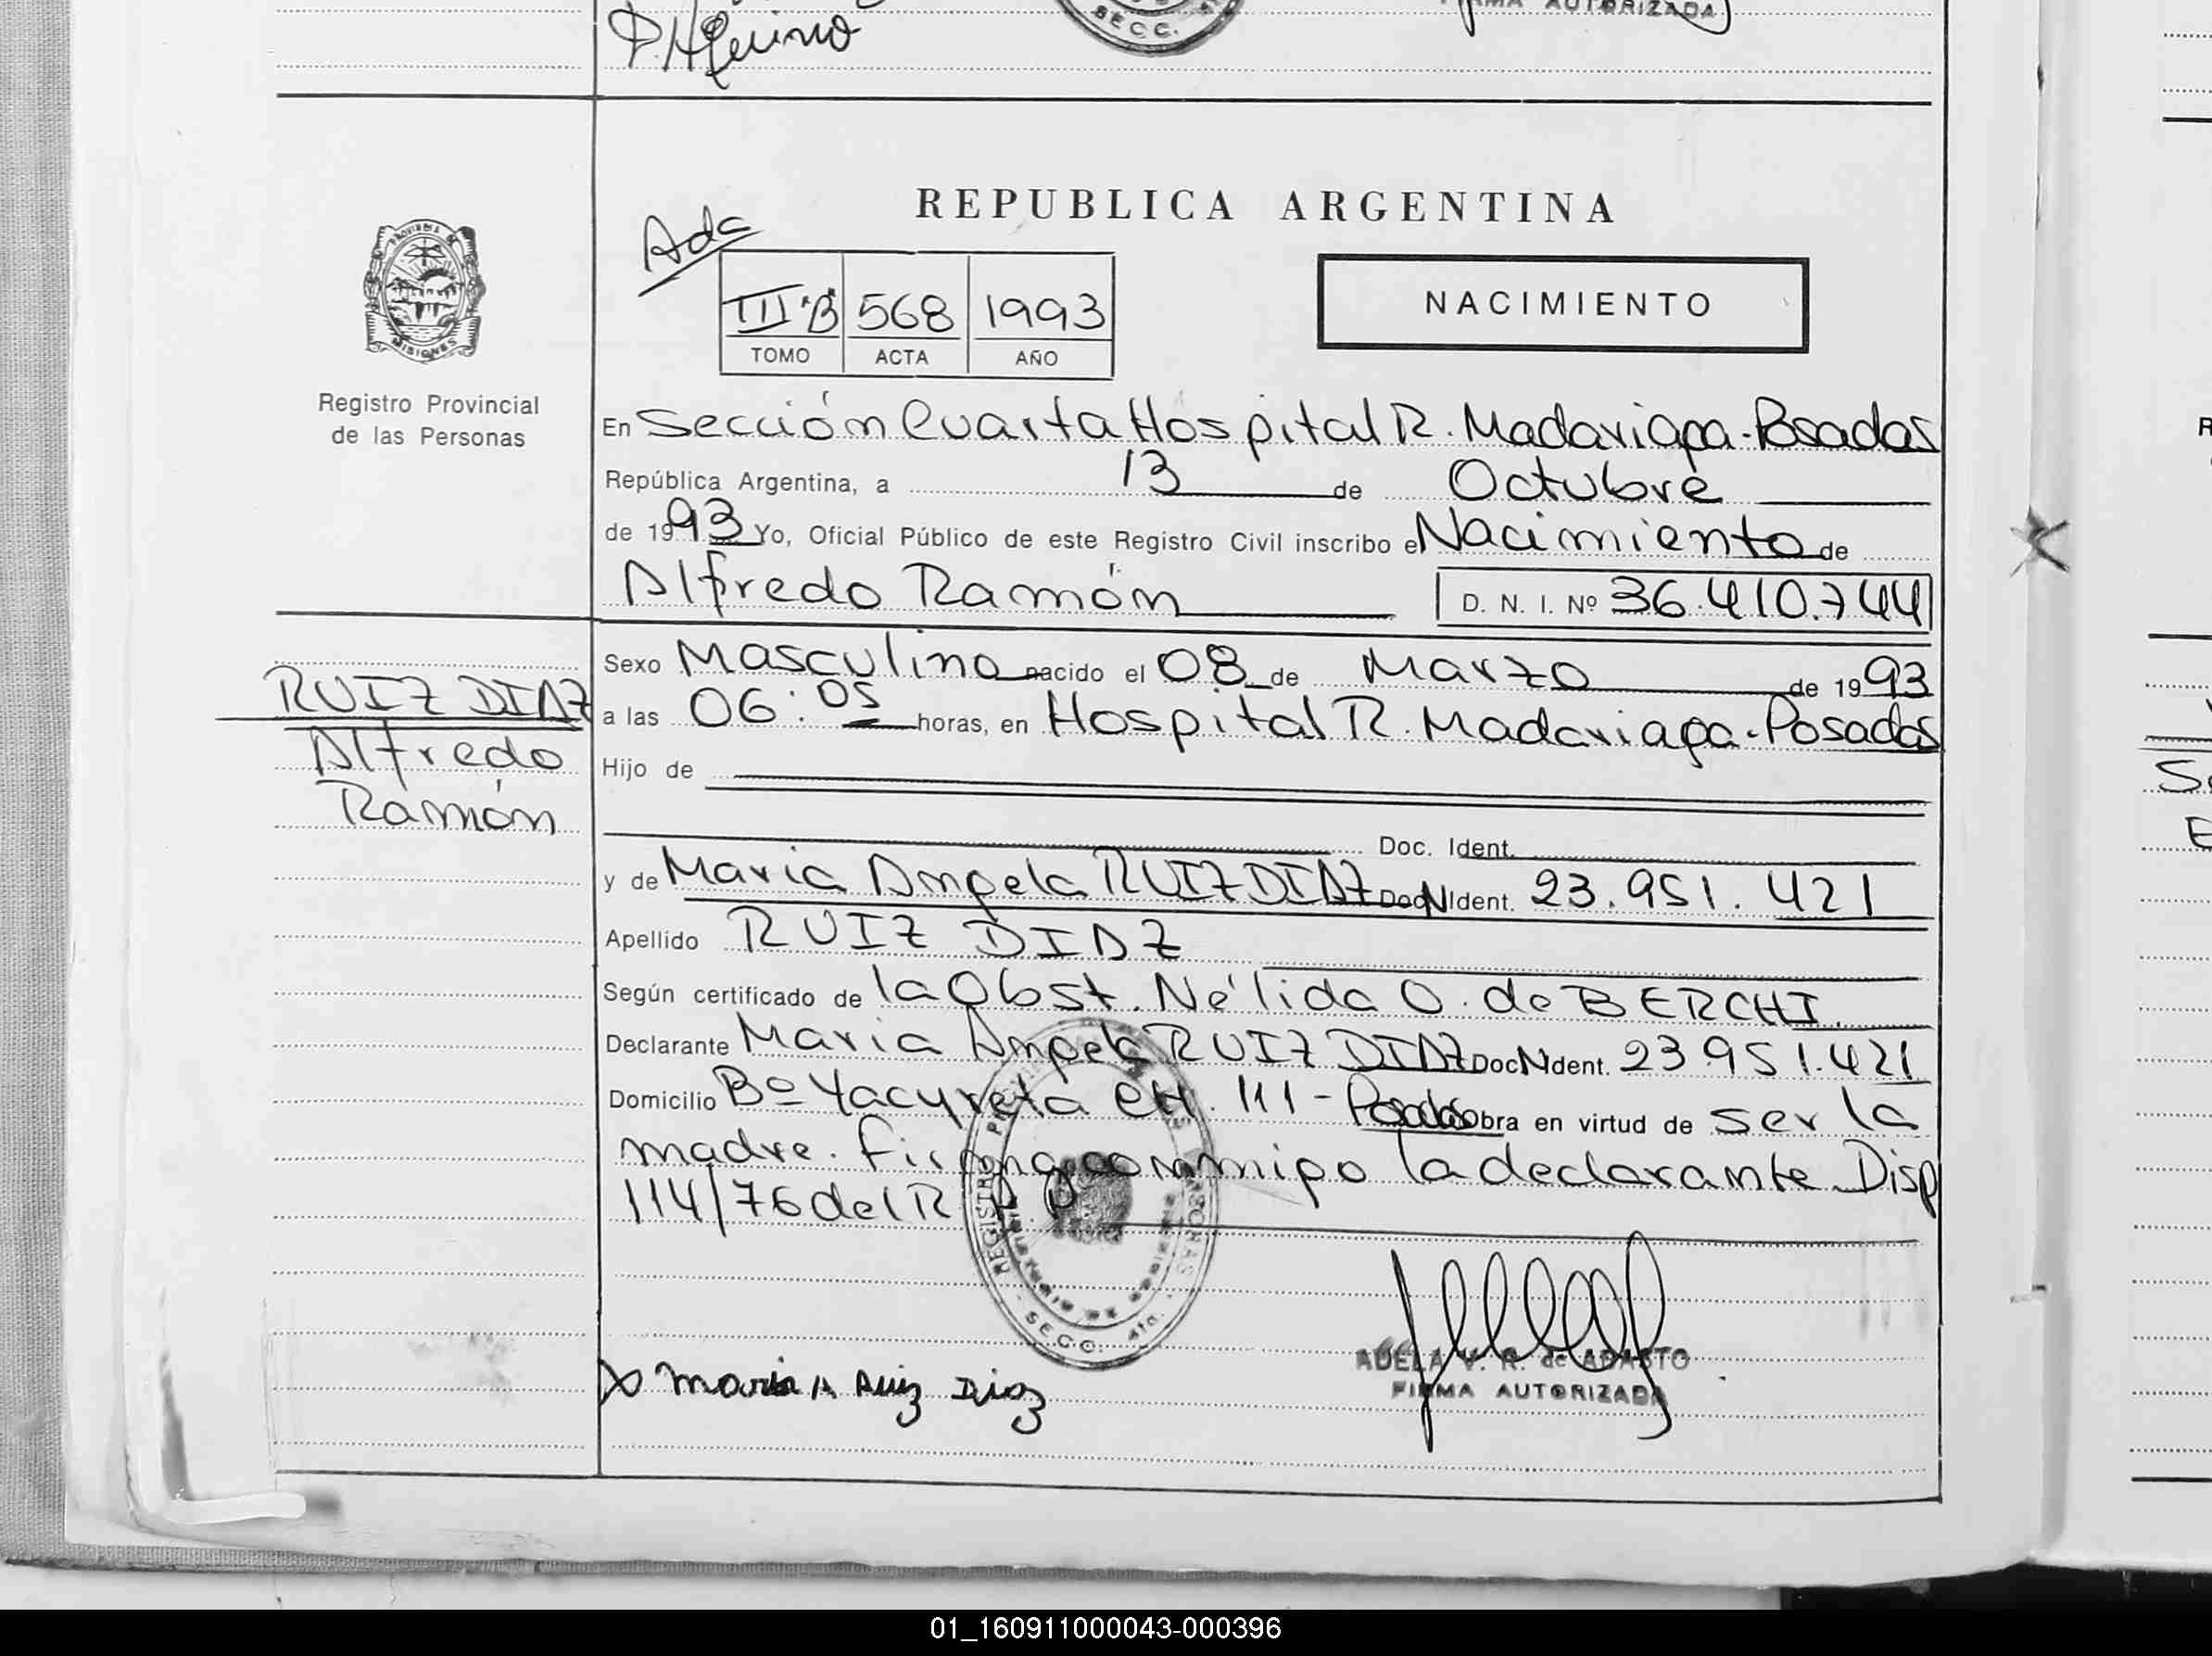 P. Aquino
SECC.
FIRMA AUTORIZADA
REPUBLICA ARGENTINA
Ada
III "B" 568 1993
TOMO ACTA AÑO
NACIMIENTO
PROVINCIA DE
MISIONES
Registro Provincial
de las Personas
En Sección Cuarta Hospital R. Madariaga-Posadas
República Argentina, a 13 de Octubre
de 1993 Yo, Oficial Público de este Registro Civil inscribo el Nacimiento de
Alfredo Ramón D. N. I. Nº 36.410.744
Sexo Masculino nacido el 08 de Marzo de 1993
RUIZ DIAZ
Alfredo
Ramón
a las 06:05 horas, en Hospital R. Madariaga-Posadas
Hijo de
Doc. Ident.
y de Maria Angela RUIZ DIAZ Doc N Ident. 23.951.421
Apellido RUIZ DIAZ
Según certificado de la Obst. Nélida O. de BERCHI.
Declarante Maria Angela RUIZ DIAZ Doc N Ident. 23.951.421
Domicilio Bº Yacyreta CH. 111 - Posadas obra en virtud de ser la
madre. Firma conmigo la declarante. Disp
114/76 del R. P. P
REGISTRO PERSONAS
SECC. 4ta.
ADELA V. R. de ABASTO
FIRMA AUTORIZADA
Maria A Ruiz Diaz
01_160911000043-000396